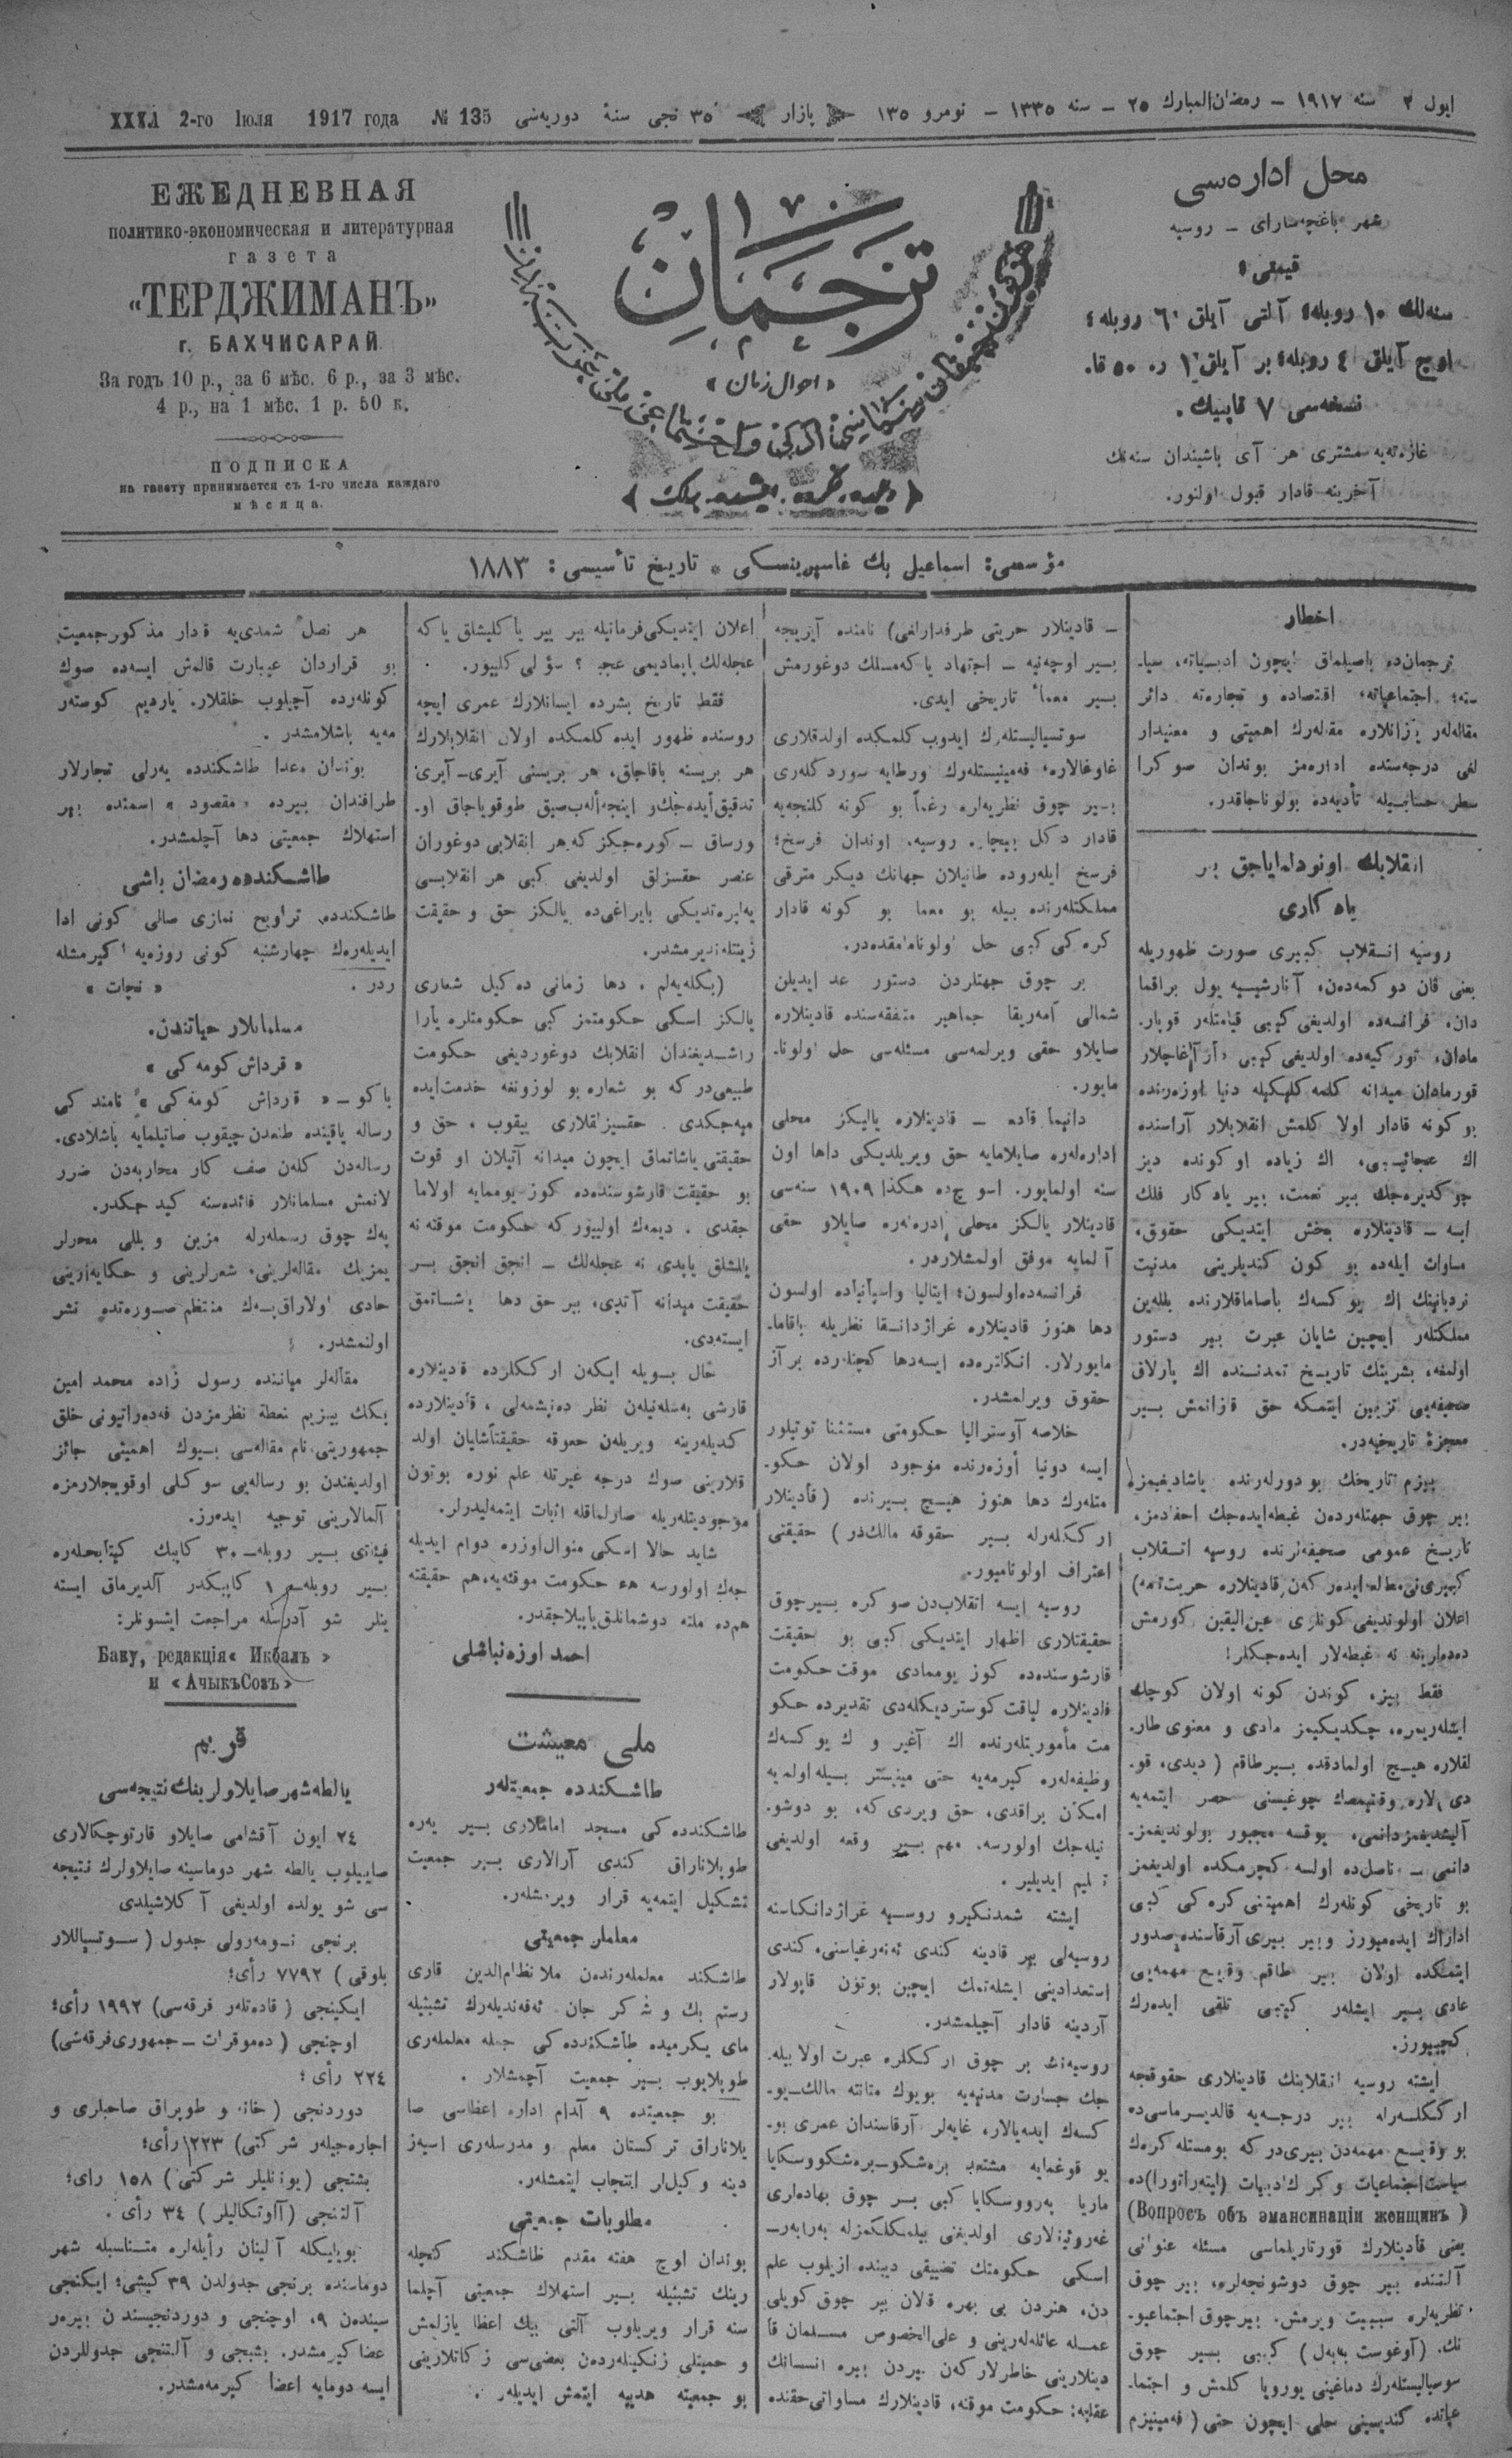 ایول ٢ سنه ١٩١٧ – رمضان المبارك ٢٥ – سنه ١٣٣٥ – نومرو ١٣٥ بازار ٣٥ نجی سنۀ دوریه‌سی № 135 1917 года 2-го Іюля
محل اداره‌سی
شهر باغچه‌سارای – روسیه
قیمتی؛
سنه‌لك ١٠ روبله؛ آلتی آیلق ٦ روبله؛
اوچ آیلق ٤ روبله؛ بر آیلق ١ ر. ٥٠ قا.
نسخه‌سی ٧ قاپیك.
غازه‌ته‌یه مشتری هر آی باشیندان سنه‌نك
آخرینه قادار قبول اولنور.
ترجمان
« احوال زمان »
« دیلده، فکرده، ایشده برلك »
ЕЖЕДНЕВНАЯ
политико-экономическая и литературная
газета
«ТЕРДЖИМАНЪ»
г. БАХЧИСАРАЙ
За годъ 10 р., за 6 мѣс. 6 р., за 3 мѣс.
4 р., на 1 мѣс. 1 р. 50 к.
ПОДПИСКА
на газету принимается съ 1-го числа каждаго
мѣсяца.
مؤسسی: اسماعیل بك غاسپرینسکی * تاریخ تأسیسی: ١٨٨٣
اخطار
ترجمان‌ده باصیلماق ایچون ادبیاته، سیا-
سته؛ اجتماعیاته؛ اقتصاده و تجارته دائر
مقاله‌لر یازانلاره مقاله‌لرك اهمیتی و معنیدار
لغی درجه‌سنده اداره‌مز بوندان صوکرا
سطر حسابیله تأدیه‌ده بولوناجاقدر.
انقلابك اونودلمایاجق بر
یادکاری
روسیه انقلاب کبیری صورت ظهوریله
یعنی قان دوکمه‌دن، آنارشیه یول براقما
دان، فرانسه‌ده اولدیغی کبی قیامتلر قوپار-
مادان، تورکیه‌ده اولدیغی کبی دار آغاچلار
قورمادان میدانه کلمه‌کلیکیله دنیا اوزه‌رنده
بو کونه قادار اولا کلمش انقلابلار آراسنده
اك عجائبی، اك زیاده او کونده دیز
چوکدیره‌جك بیر نعمت، بیر یادکار فلك
ایسه – قادینلاره بخش ایتدیکی حقوق،
مساوات ایله‌ده بو کون کندیلرینی مدنیت
نردبانینك اك یوکسك باصاماقلارنده بللەین
مملکتلر ایچین شایان عبرت بیر دستور
اولمقه، بشریتك تاریخ تمدنسنده اك پارلاق
صحیفه‌یی تزیین ایتمکه حق قازانمش بیر
معجزۀ تاریخیه‌در.
بیزم تاریخك بو دورلەرنده یاشادیغیمزه
بیر چوق جهتلەردن غبطه‌ایده‌جك احفادمز،
تاریخ عمومی صحیفه‌لرنده روسیه انقلاب
اعلان اولوندیغی کونلری عین‌الیقین کورمش
دده‌لرینه نه غبطه‌لار ایده‌جکلر!
فقط بیز، کوندن کونه اولان کوچك
ایشلەریمزه، چکدیکیمز مادی و معنوی طار-
لقلاره هیچ اولمادقده بیر طاقم ( دیدی، قو-
دی ) لاره وقتیمزك چوغیسنی حصر ایتمه‌یه
آلیشدیغمزدانمی، یوقسه مجبور بولوندیغمز-
دانمی – ناصل‌ده اولسه کچرمکده اولدیغمز
بو تاریخی کونلەرك اهمیتنی کره‌کی کبی
ادراك ایده‌میورز وبیر بیری آرقاسنده صدور
ایتمکده اولان بیر طاقم وقایع مهمه‌یی
عادی بیر ایشلەر کبی تلقی ایده‌رك
کچییورز.
ایشته روسیه انقلابنك قادینلاری حقوقجه
ارککلەرله بیر درجه‌یه قالدیرماسی‌ده
بو وقایع مهمه‌دن بیری‌در که بومسئله کره‌ك
سیاست‌اجتماعیات وکرك ادبیات (لیته‌راتورا)ده
(Вопросъ объ эмансипаціи женщинъ)
یعنی قادینلارك قورتاریلماسی مسئله عنوانی
آلتنده بیر چوق دوشونجه‌لره، بیر چوق
نظریه‌لره سببیت ویرمش. بیرچوق اجتماعیو-
نك، (آوغوست به‌به‌ل) کبی بیر چوق
سوسیالیستلەرك دماغینی یورویا کلمش و اجتما-
عیاتده کندیسینی حلی ایچون حتی ( فه‌مینیزم
– قادینلار حریتی طرفدارلغی) نامنده آیریجه
بیر اوچه‌نیه – اجتهاد یا که‌مسلك دوغورمش
بیر معمأ تاریخی ایدی.
سوتسیالیستلەرك ایدوب کلمکده اولدقلاری
غاوغالاره، فه‌مینیستلەرك اورطایه سوردکلەری
بیر چوق نظریه‌لره رغماً بو کونه کلنجه‌یه
قادار دکل بیچاره روسیه، اوندان فرسخ؛
فرسخ ایلەروده طانیلان جهانك دیکر مترقی
مملکتلەرنده بیله بو معما بو کونه قادار
کره‌کی کبی حل اولونامامقده‌در.
بر چوق جهتلردن دستور عد ایدیلن
شمالی آمه‌ریقا جماهیر متفقه‌سنده قادینلاره
صایلاو حقی ویرلمه‌سی مسئله‌سی حل اولونا-
مایور.
دانیمارقاده – قادینلاره یالیکز محلی
اداره‌لره صایلامایه حق ویریلدیکی داها اون
سنه اولمایور. اسوچ‌ده هکذا ١٩٠٩ سنه‌سی
قادینلار یالکز محلی اداره‌لره صایلاو حقی
آلمایه موفق اولمشلاردر.
فرانسه‌ده‌اولسون؛ ایتالیا واسپانیاده اولسون
دها هنوز قادینلاره غراژدانقا نظریله باقاما-
مایورلار. انکلتره‌ده ایسه‌دها کچنلرده بر آز
حقوق ویرلمشدر.
خلاصه آوسترالیا حکومتی مستثنا توتیلور
ایسه دونیا اوزه‌رنده موجود اولان حکو-
متلەرك دها هنوز هیچ بیرنده (قادینلار
ارککلەرله بیر حقوقه مالك‌در) حقیقتی
اعتراف اولونامیور.
روسیه ایسه انقلاب‌دن صوکره بیرچوق
حقیقتلاری اظهار ایتدیکی کبی بو حقیقت
قارشوسنده‌ده کوز یوممادی موقت حکومت
قادینلاره لیاقت کوستردیکله‌دی تقدیرده حکو
مت مأموریتلەرنده اك آغیر و اك یوکسك
وظیفه‌لره کیرمه‌یه حتی مینیستر بیله اولمه‌یه
امکان براقدی، حق ویردی که، بو دوشو-
نیله‌جك اولورسه، مهم بیر وقعه اولدیغی
تسلیم ایدیلیر.
ایشته شمدنکیرو روسیه غراژدانکاسنه
روسیه‌لی بیر قادینه کندی ئه‌نه‌رغیاسنی، کندی
استعدادینی ایشله‌تمك ایچین بوتون قاپولار
آردینه قادار آچیلمشدر.
روسیه‌نك بر چوق ارککلره عبرت اولا بیله-
جك جسارت مدنیه‌یه بویوك متانته مالك-یو-
کسك ایده‌یالار، غایه‌لر آرقاسندان عمری بو-
یو قوغمایه مشتعد بره‌شکو–بره‌شکووسکایا
ماریا په‌رووسکایا کبی بر چوق بهاده‌لری
غه‌روئینالاری اولدیغنی بیلمکلکمزله به‌رابه‌ر–
اسکی حکومتك تضییقی دیبنده ازیلوب علم
دن، هنردن بی بهره قالان بیر چوق کویلی
عمله عائله‌لەرینی و علی‌الخصوص مسلمان قا
دینلارینی خاطرلارکەن بیردن بیره انسانك
عقلینه: حکومت موقته، قادینلارك مساواتی‌حقنده
اعلان ایتدیکی‌فرمانیله بیر بیر یاکلیشلق یاکه
عجله‌لك یاپمادیمی عجبا ؟ سؤالی کلیور.
فقط تاریخ بشرده ایسانلارك عمری ایچه
روسنده ظهور ایده کلمکده اولان انقلابلارك
هر بریسنه باقاجاق، هر بریسنی آیری-آیری
تدقیق‌ایده‌جك‌و اینجه‌أله‌ب‌صیق طوقویاجاق او-
ورساق – کوره‌جکز که هر انقلابی دوغوران
عنصر حقسزلق اولدیغی کبی هر انقلابسی
یه‌لپره‌تدیکی بایراغی‌ده یالکز حق و حقیقت
زینتله‌ندیرمشدر.
(بکله‌یه‌لم، دها زمانی ده‌کیل شعاری
یالکز اسکی حکومتمز کبی حکومتلره یارا
راشدیغندان انقلابك دوغوردیغی حکومت
طبیعی‌در که بو شعاره‌بو لوزونغه خدمت‌ایده
میه‌جکدی. حقسیزلقلاری ییقوب، حق و
حقیقتی یاشاتماق ایچون میدانه آتیلان او قوت
بو حقیقت قارشوسنده‌ده کوز یوممایه اولاما
جقدی. دیمه‌ك اولیور که حکومت موقته نه
یالنشلق یاپدی نه عجله‌لك – انجق انجق بر
حقیقت میدانه آتدی، بیر حق دها یاشاتمق
ایسته‌دی.
حال بویله ایکەن ارککلرده قادینلاره
قارشی به‌سله‌نیلەن نظر ده‌نیشمه‌لی، قادینلارده
کندیله‌رینه ویریلەن حقوقه حقیقتاًشایان اولد
قلارینی صوك درجه غیرتله علم نوره بوتون
موجودیتلەریله صارلماقله اثبات ایتمه‌لیدرلر.
شاید حالا اسکی منوال‌اوزره دوام ایدیله
جه‌ك اولورسه هم حکومت موقته‌یه،هم حقیقته
هم‌ده ملته دوشمانلق‌یاپیلاجقدر.
احمد اوزه‌نباشلی
ملی معیشت
طاشکندده جمعیتلر
طاشکندده‌کی مسجد اماملاری بیر یه‌ره
طوپلاناراق کندی آرالاری بیر جمعیت
تشکیل ایتمه‌یه قرار ویرمشلر.
معلملر جمعیتی
طاشکند معلملەرندەن ملا نظام‌الدین قاری
رستم بك و شاکر جان ئه‌فه‌ندیلەرك تشبثیله
مای یکرمیده طاشکندده‌کی جمله معلملەری
طوپلایوب بیر جمعیت آچمشلار.
بو جمعیتده ٩ آدام اداره اعظاسی صا
یلاناراق ترکستان معلم و مدرسلەری اسیەز
دینه وکیل‌لر انتخاب ایتمشلەر.
مطلوبات جمعیتی
بوندان اوچ هفته مقدم طاشکند کنجله
رینك تشبثیله بیر استهلاك جمعیتی آچلما
سنه قرار ویریلوب آلتی بیك اعظا یازلمش
و حمیتلی زنکینلەردەن بعضی‌سی زکاتلارینی
بو جمعیته هدیه ایتمش ایدیلەر.
هر نصل شمدی‌یه قدار مذکورجمعیت
بو قراردان عبارت قالمش ایسه‌ده صوك
کونلەرده آچیلوب خلقلار. یاردیم کوستەر
مه‌یه باشلامشدر.
بوندان ماعدا طاشکندده یه‌رلی تجارلار
طرافندان بیرده « مقصود » اسمنده بیر
استهلاك جمعیتی دها آچلمشدر.
طاشکندده رمضان باشی
طاشکندده، تراویح نمازی صالی کونی ادا
ایدیله‌ره‌ك چهارشنبه کونی روزه‌یه کیرمشله
ردر. « نجات »
مسلمانلار حیاتندن.
« قرداش کومه‌کی »
باکو – « قرداش کومه‌کی » نامند کی
رساله یاقینده طبعدن چیقوب صاتیلمایه باشلادی.
رساله‌دن کله‌ن صف کار محاربه‌دن ضرر
لانمش مسلمانلار فائده‌سنه کیده‌جکدر.
یه‌ك چوق رسملەرله مزین و بللی محررلر
یمزیك مقاله‌لرینی، شعرلرینی و حکایه‌لرینی
حاوی اولاراق‌یه‌ك منتظم صوره‌تده نشر
اولنمشدر.
مقاله‌لر میاننده رسول زاده محمد امین
بکك بیزیم نقطۀ نظرمزدن فه‌ده‌راتیونی خلق
جمهوریتی،نام مقاله‌سی بیوك اهمیتی جائز
اولدیغندن بو رساله‌یی سوکلی اوقویجلارمزه
آلمالارینی توجیه ایده‌رز.
فیئاتی بیر روبله–٣٠ کاپیك کپتابجیله‌ره
ینلر شو آدرسله مراجعت ایتسونلر:
Баку, редакція« Икбалъ »
и «АчыкъСозъ»
قریم
یالطه‌شهر صایلاولرینك نتیجه‌سی
٢٤ ایون آقشامی صایلاو قارتوچکالاری
صاییلوب یالطه شهر دوماسینه صایلاولرك نتیجه
سی شو یولده اولدیغی آکلاشیلدی
برنجی نومه‌رولی جدول ( سوتسیاللار
بلوقی ) ٧٧٩٢ رأی؛
ایکینجی ( قاده‌تلەر فرقه‌سی) ١٩٩٢ رأی؛
اوچنجی ( ده‌موقرات – جمهوری‌فرقه‌سی)
٢٢٤ رأی ؛
دوردنجی ( خانه و طوپراق صاحبلری و
اجاره‌جیلەر شرکتی) ١٢٢٣ رأی؛
بشنجی (یونلیلر شرکتی ) ١٥٨ رای؛
آلتنجی ( ) ٣٤ رأی.
بویلیکله آلینان رأیله‌ره متناسبله شهر
دوماسنده برنجی جدولدن ٣٩ کیشی؛ ایکنجی
سیندەن ٩، اوچنجی و دوردنجیسندن بیرەر
عضا کیرمشدر. بشنجی و آلتنجی جدوللردن
ایسه دومایه اعضا کیرمه‌مشدر.